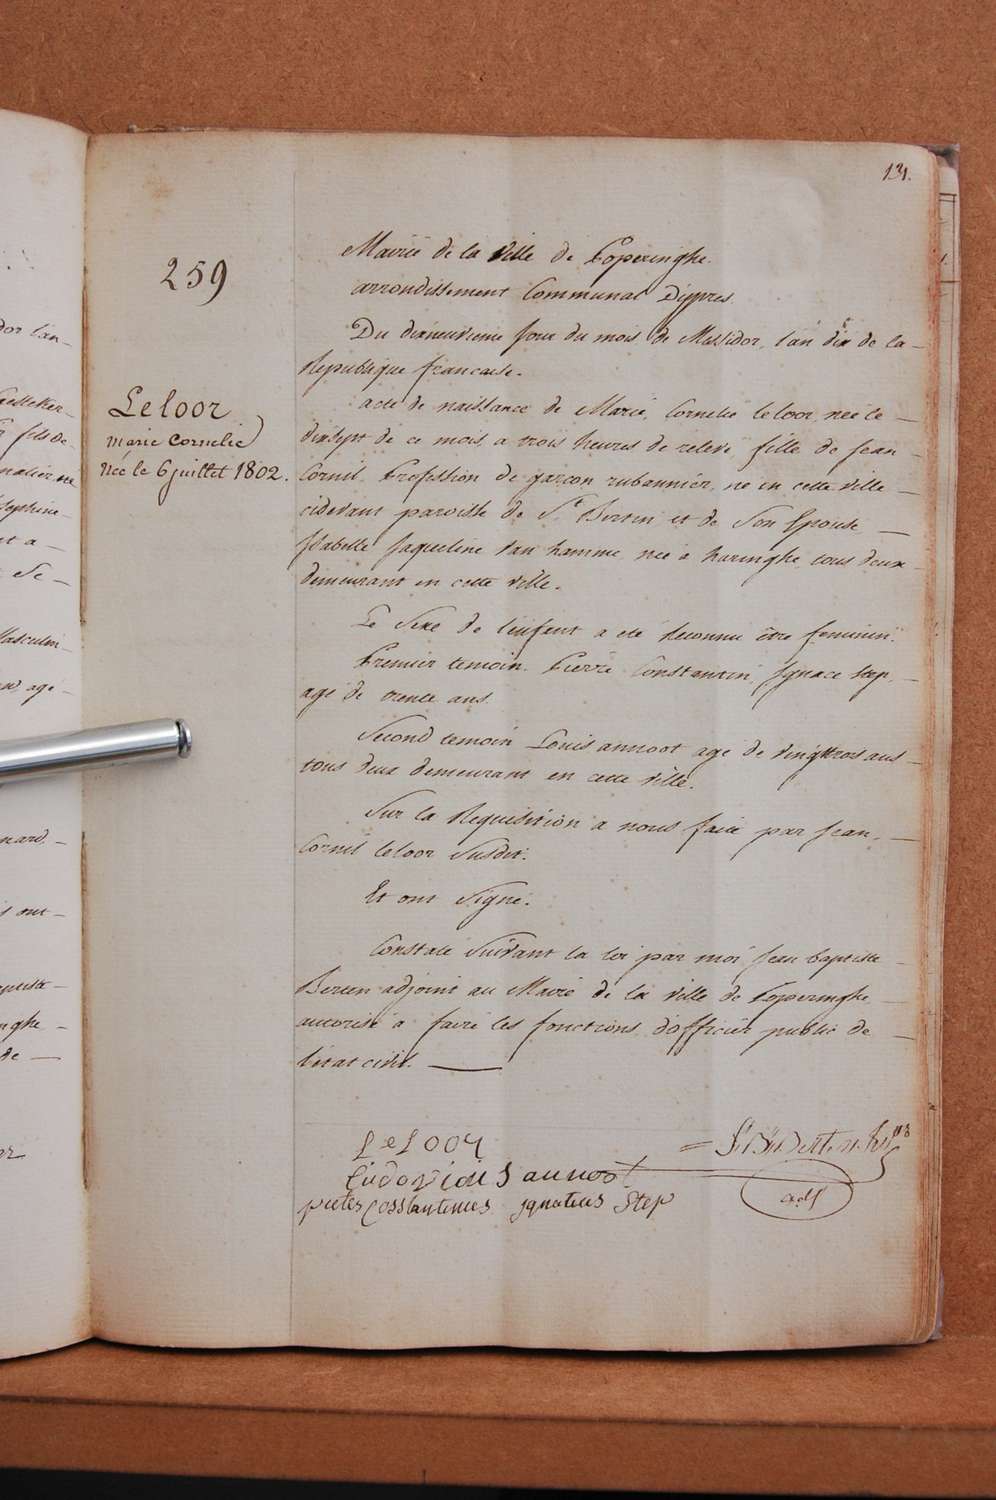 131.
259
Mairie de la Ville de Poperinghe
arrondissement Communal Dippres.
Du dixneuvieme jour du mois de Messidor, l'an dix de la
Republique francaise.
Leloor
marie Cornelie
Née le 6 juillet 1802.
acte de naissance de Marie, Cornelie leloor, née le
dixsept de ce mois, a trois heures de relevé, fille de Jean
Cornil, Profession de garcon rubannier, né en cette ville
cidevant paroisse de St Bertin et de Son Epouse
Isabelle Jaqueline Van hamme, née a haringhe tous deux
demeurant en cette ville.
Le Sexe de l'enfant a eté Reconnu être feminin.
Premier temoin. Pierre Constantin, Ignace Step,
agé de trente ans.
Second temoin Louis annoot agé de vingttrois ans
tous deux demeurant en cette ville.
Sur la Requisition a nous faite par Jean,
Cornil leloor Susdit.
Et ont Signé.
Constaté Suivant la loi par moi Jean baptiste
Berten adjoint au Maire de la Ville de Poperinghe
autorisé a faire les fonctions d'officier public de
l'etat civil.
LeLoor
Ludovicus annoot
pietes Constantinus Ignatius Step
adjt